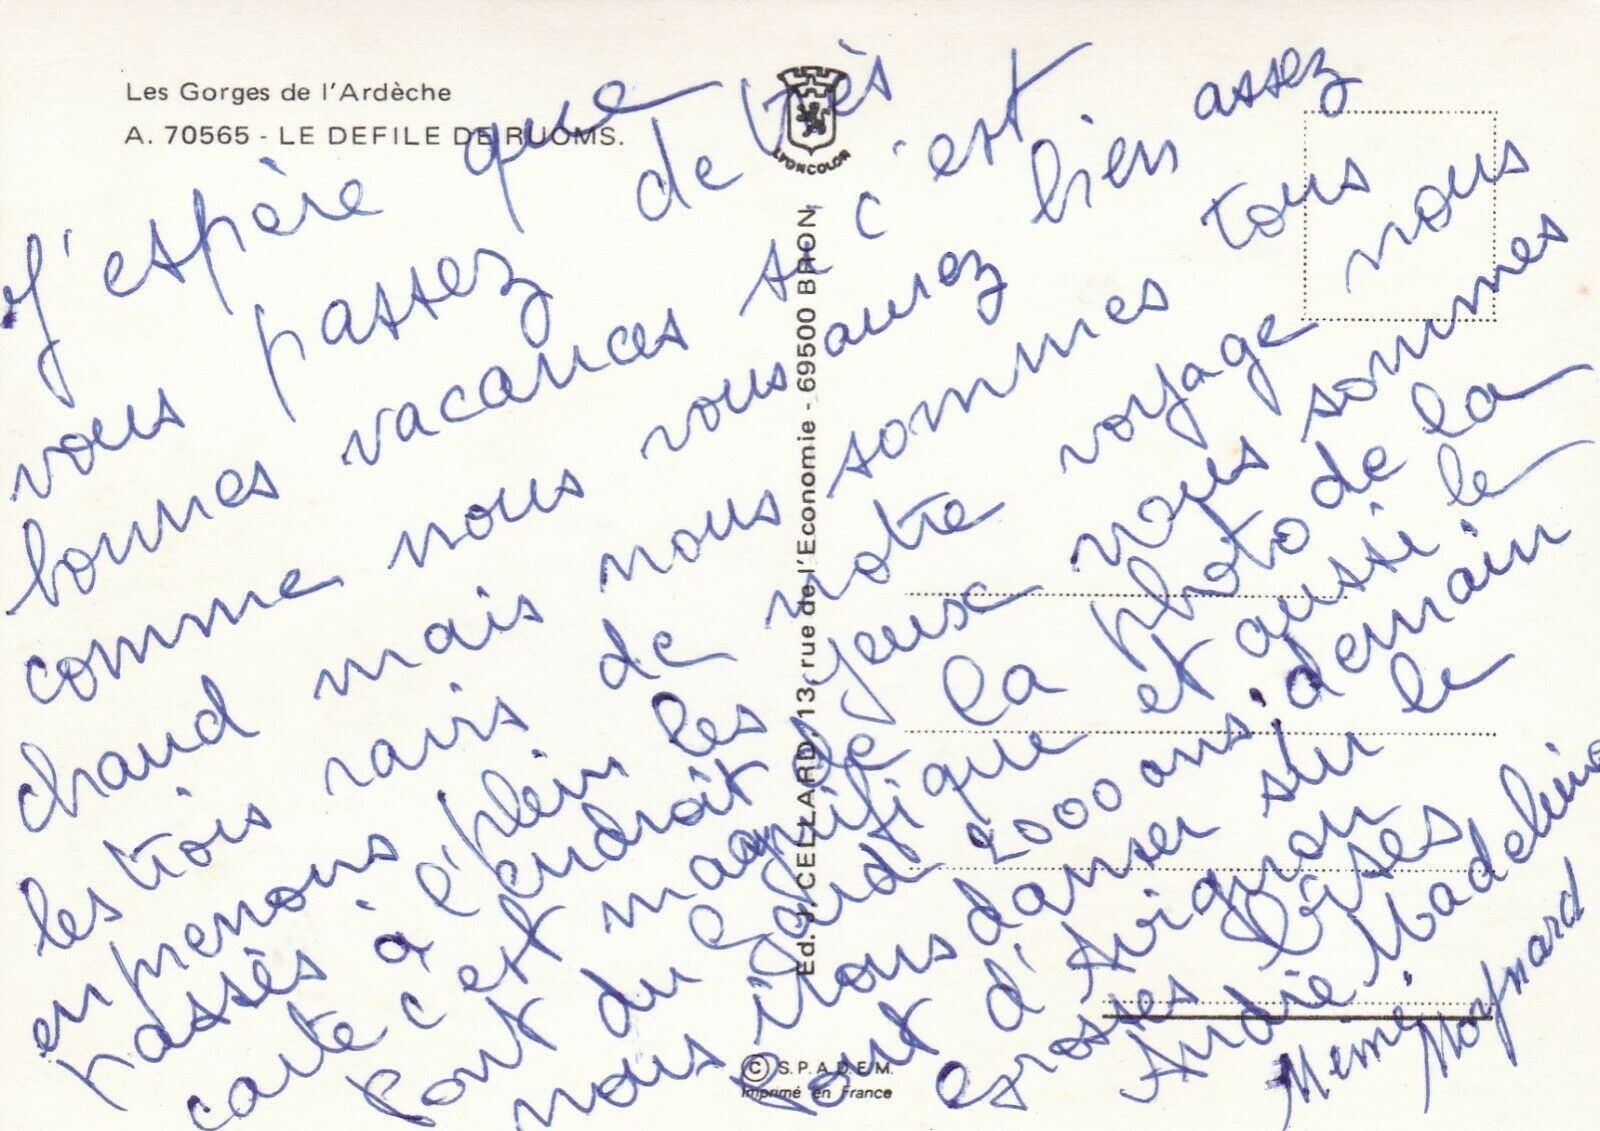 Les Gorges de l'Ardèche
A. 70565 - LE DEFILE DE RUOMS.
LYONCOLOR
Ed. J. CELLARD, 13, rue de l'Economie - 69500 BRON
J'espère que
vous passez de très
bonnes vacances si c'est
comme nous vous aurez bien assez
chaud mais nous sommes tous
les trois ravis de notre voyage nous
en prenons plein les yeux nous sommes
passès à l'endroit de la photo de la
carte c'est magnifique et aussi le
Pont du Gard 2000 ans. demain
nous irons danser sur le
Pont d'Avignon
Grosses bises
Andrée Madeleine
Mémé Moynard
© S.P.A.D.E.M.
Imprimé en France